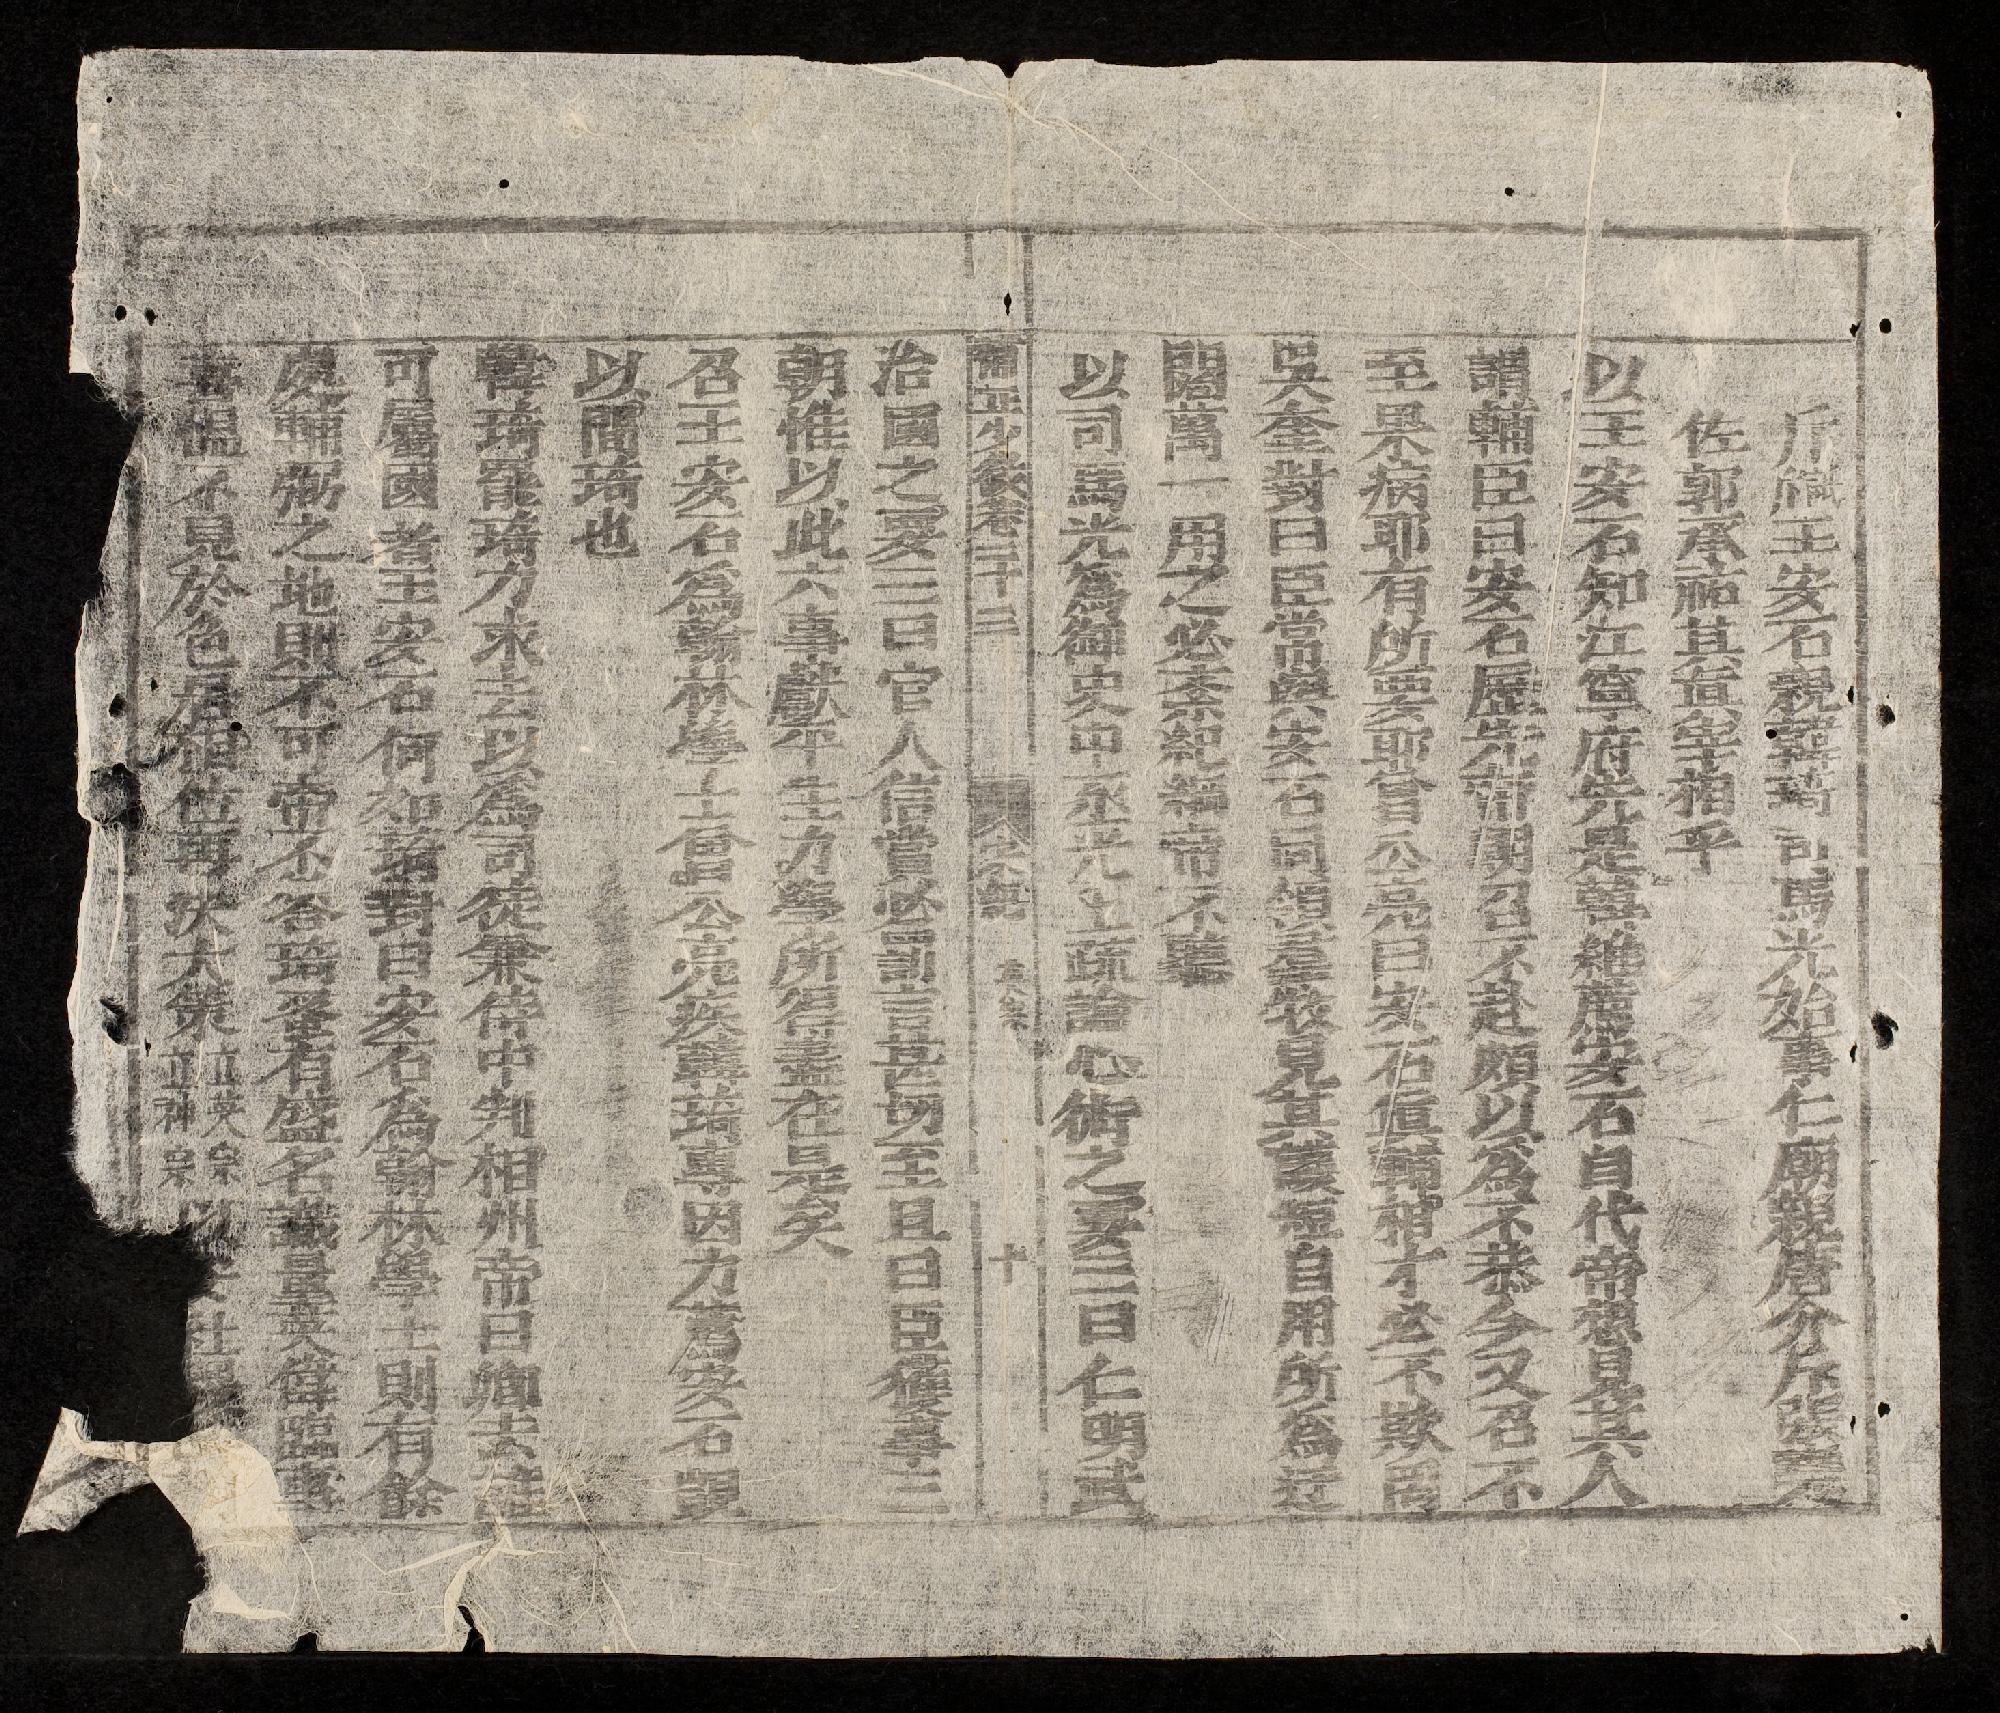 斥滅王安石親韓琦司馬光始垂仁廟親唐介斥張堯
佐郭承祐其旨室相乎
以王安石知江寧府先是韓維薦安石自代帝想見其人
謂輔臣曰安石歷先帝朝召不赴頗以爲不恭今又召不
至果病耶有所要耶曾公亮曰安石眞輔相才必不欺罔
吳奎對曰臣嘗與安石同領羣牧見其護短自用所爲迂
闊萬一用之必紊紀綱帝不聽
以司馬光爲御史中丞光上疏論心術之要三曰仁明武
少微卷二十二 宋紀 英宗 十
治國之要三曰官人信賞必罰言甚切至且曰臣獲事三
朝惟以此六事獻平生力學所得盡在是矣
召王安石爲翰林學士曾公亮疾韓琦專因力薦安石覬
以間琦也
韓琦罷琦力求去以爲司徒兼侍中判相州帝曰卿去誰
可屬國者王安石何如琦對曰安石爲翰林學士則有餘
處輔弼之地則不可帝不答琦蚤有盛名識量英偉臨事
喜慍不見於色居相位再決大策立英宗立神宗以安社